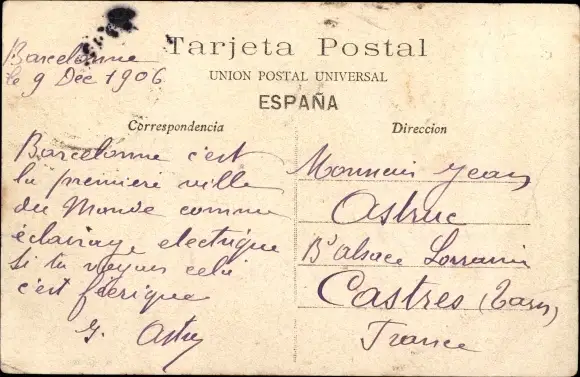 Tarjeta Postal
UNION POSTAL UNIVERSAL
ESPAÑA
Correspondencia
Direccion
Barcelonne
le 9 Déc 1906
Barcelonne c'est
la premiere ville
du Monde comme
éclairage electrique
Si tu voyais cela
c'est féerique
G. Astruc
Jean
Astruc
Bd alsace Lorraine
Castres (Tarn)
France